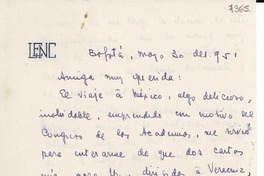 7365.
LENC
Bogotá, mayo 30 del 951
Amiga muy querida:
El viaje a México, algo delicioso,
inolvidable, emprendido con motivo del
Congreso de las Academias, me
para enterarme de que dos cartas
mías para Ud. dirigidas a Veracruz,